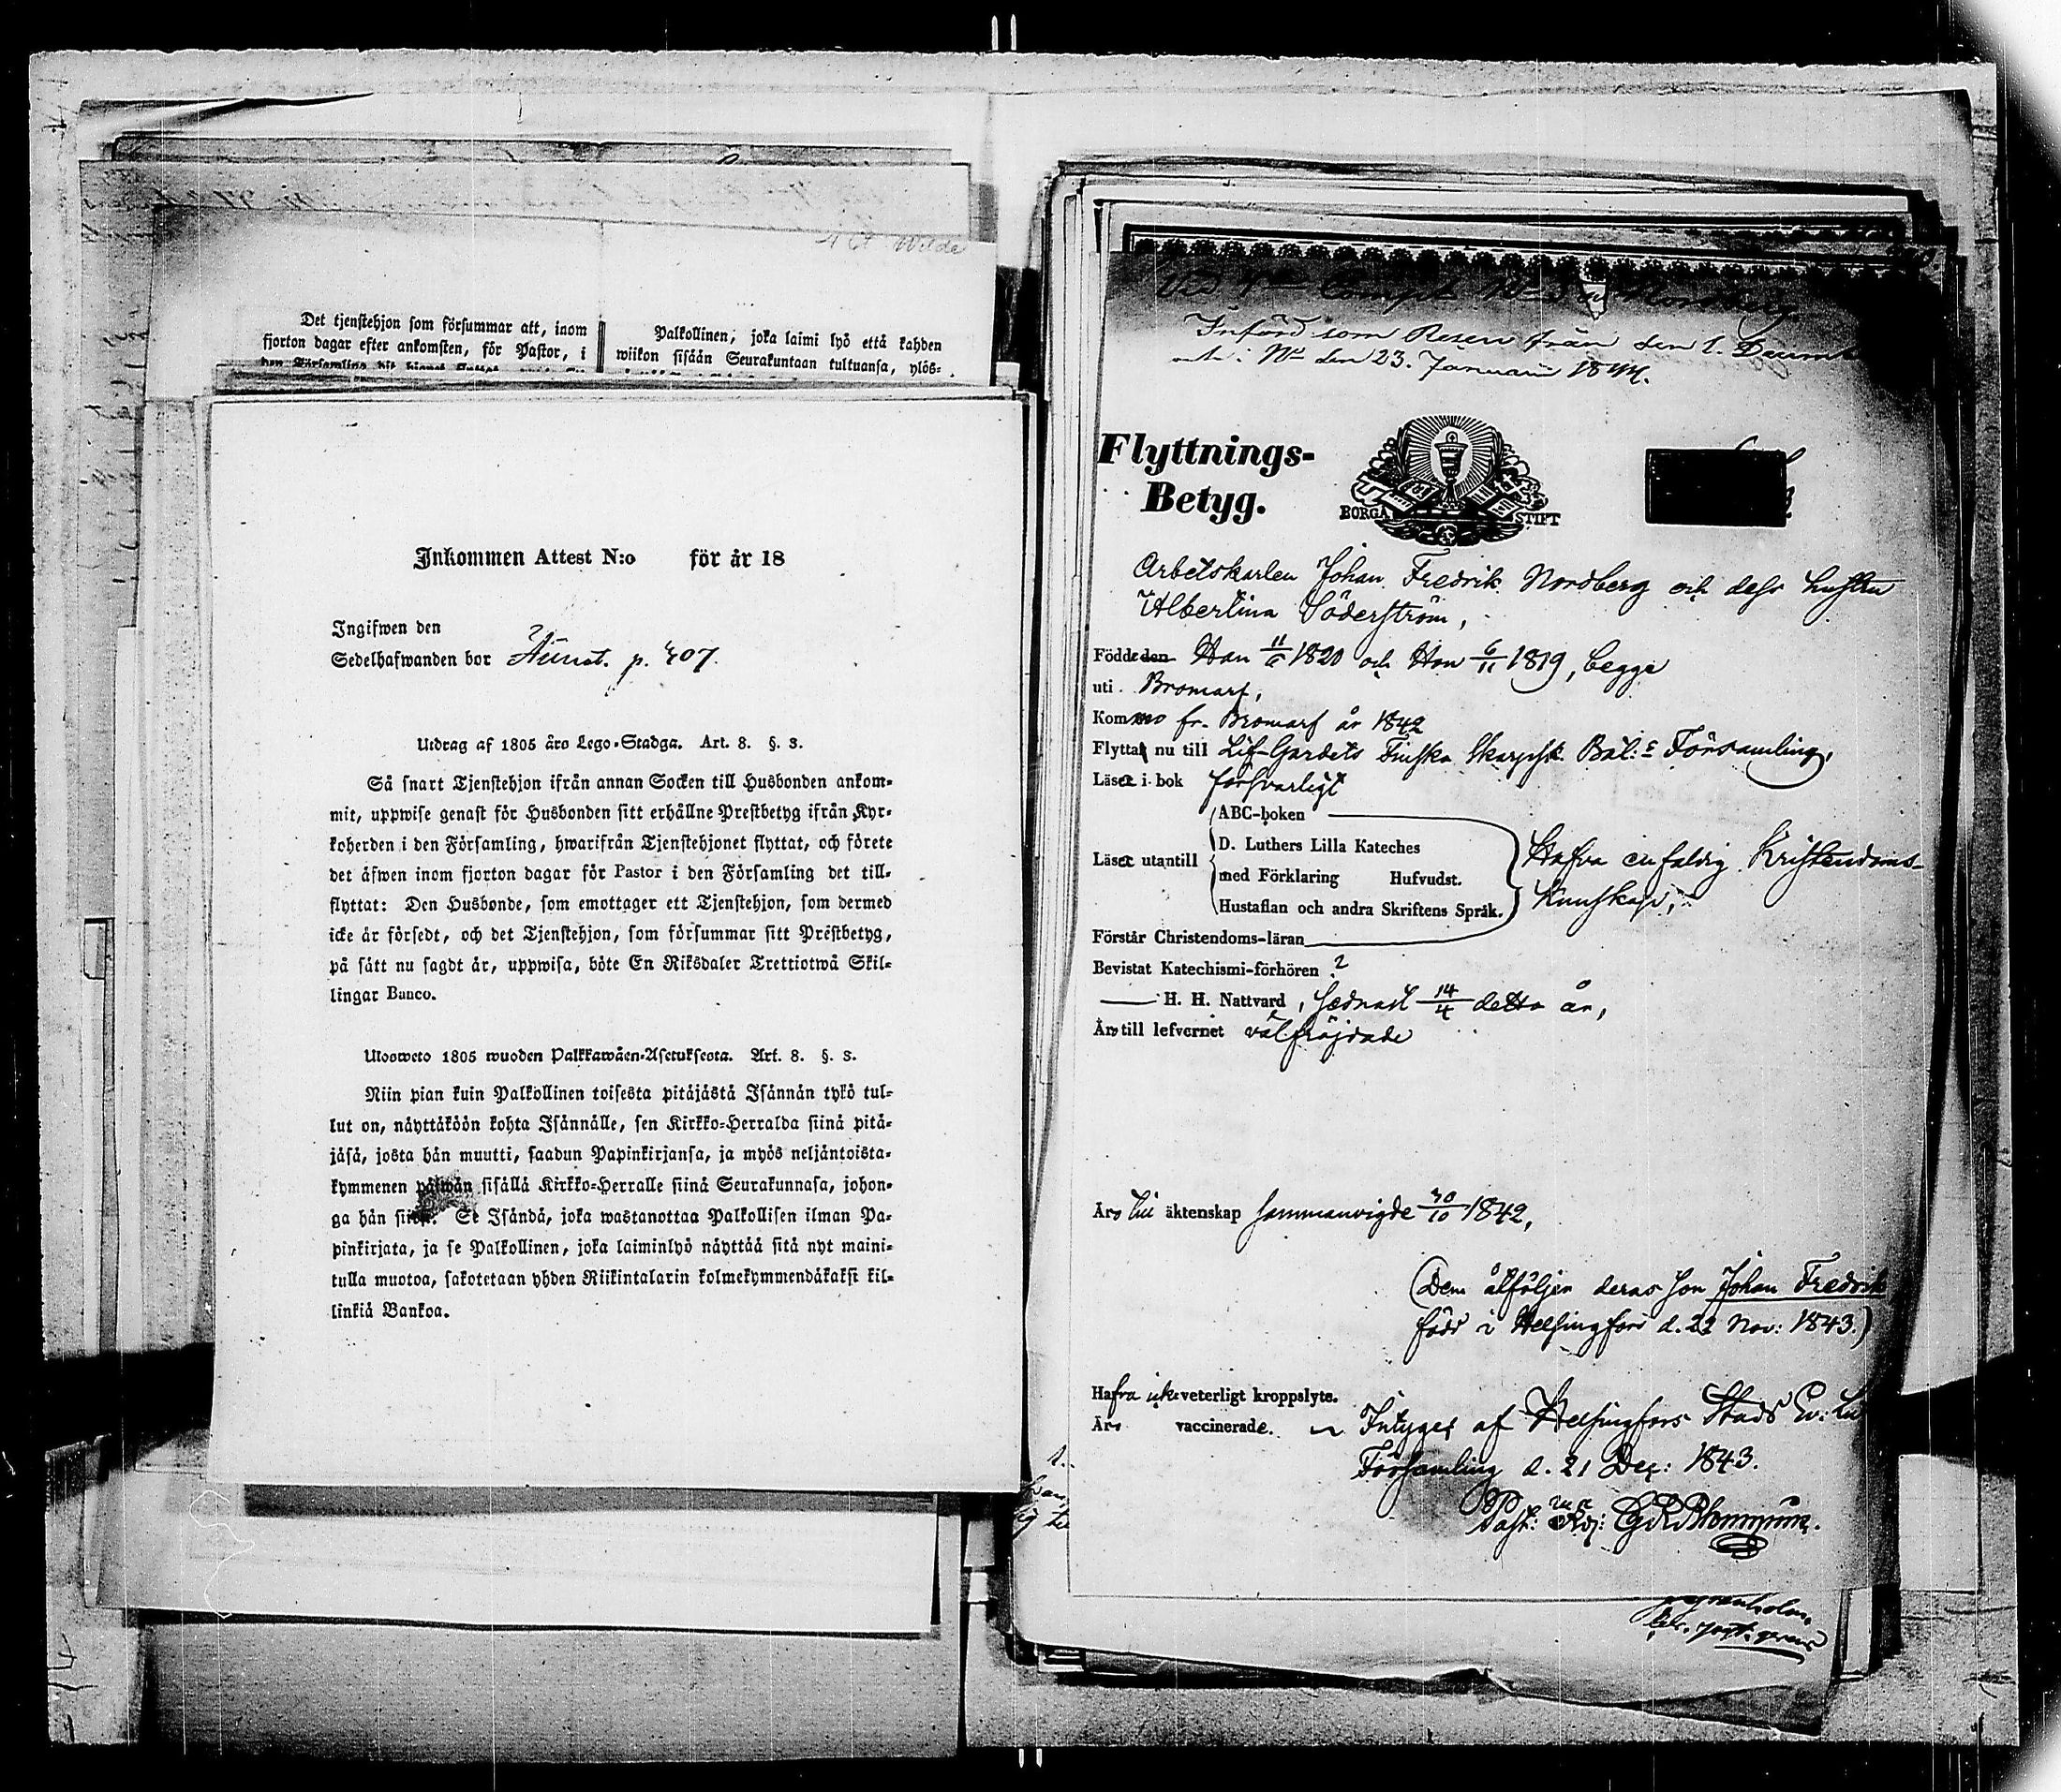 Det tjenstehjon som försummar att, inom
fjorton dagar efter ankomsten, för Pastor, i
Palkollinen, joka laimi lyö että kahden
wiikon sisään Seurakuntaan tultuansa, ylös-
Inkommen Attest N:o för år 18
Ingifwen den
Sedelhafwanden bor p. 407.
Utdrag af 1805 års Lego-Stadga. Art. 8. §. 3.
Så snart Tjenstehjon ifrån annan Socken till Husbonden ankom-
mit, uppwise genast för Husbonden sitt erhållne Prestbetyg ifrån Kyr-
koherden i den Församling, hwarifrån Tjenstehjonet flyttat, och förete
det äfwen inom fjorton dagar för Pastor i den Församling det till-
flyttat: Den Husbonde, som emottager ett Tjenstehjon, som dermed
icke är försedt, och det Tjenstehjon, som försummar sitt Prestbetyg,
på sätt nu sagdt är, uppwisa, böte En Riksdaler Trettiotwå Skil-
lingar Banco.
Ulosweto 1805 wuoden Palkkawäen-Asetuksesta. Art. 8. §. 3.
Niin pian kuin Palkollinen toisesta pitäjästä Isännän tykö tul-
lut on, näyttäköön kohta Isännälle, sen Kirkko-Herralda siinä pitä-
jäsä, josta hän muutti, saadun Papinkirjansa, ja myös neljäntoista-
kymmenen päiwän sisällä Kirkko-Herralle siinä Seurakunnasa, johon-
ga hän siirsi. Se Isändä, joka wastanottaa Palkollisen ilman Pa-
pinkirjata, ja se Palkollinen, joka laiminlyö näyttää sitä nyt maini-
tulla muotoa, sakotetaan yhden Riikintalarin kolmekymmendäkaksi kil-
linkiä Bankoa.
Införd som Reserv från den 1.
den 23. Januari 1844.
Flyttnings-
Betyg.
BORGÅ STIFT
Arbetskarlen Johan Fredrik Nordberg och dess hustru
Albertina Söderström,
Födde den Han 11/6 1820 och Hon 6/11 1819, begge
uti Bromarf,
Komno fr. Bromarf år 1842
Flytta nu till Lif-Gardets Finska Skarpsk. Bat:s Församling,
Läsa i bok försvarligt
ABC-boken
D. Luthers Lilla Kateches
Läsa utantill
med Förklaring Hufvudst.
Hustaflan och andra Skriftens Språk.
Hafva enfaldig Kristendoms-
kunskap,
Förstår Christendoms-läran
Bevistat Katechismi-förhören
H. H. Nattvard, sednast 14/4 detta år,
Äro till lefvernet välfräjdade
Äro till äktenskap sammanvigde 30/10 1842,
(Dem åtföljer deras son Johan Fredrik
född i Helsingfors d. 22 Nov: 1843.)
Hafva icke veterligt kroppslyte.
Äro vaccinerade. Intygas af Helsingfors Stads Ev: Lu
Församling d. 21 Dec: 1843.